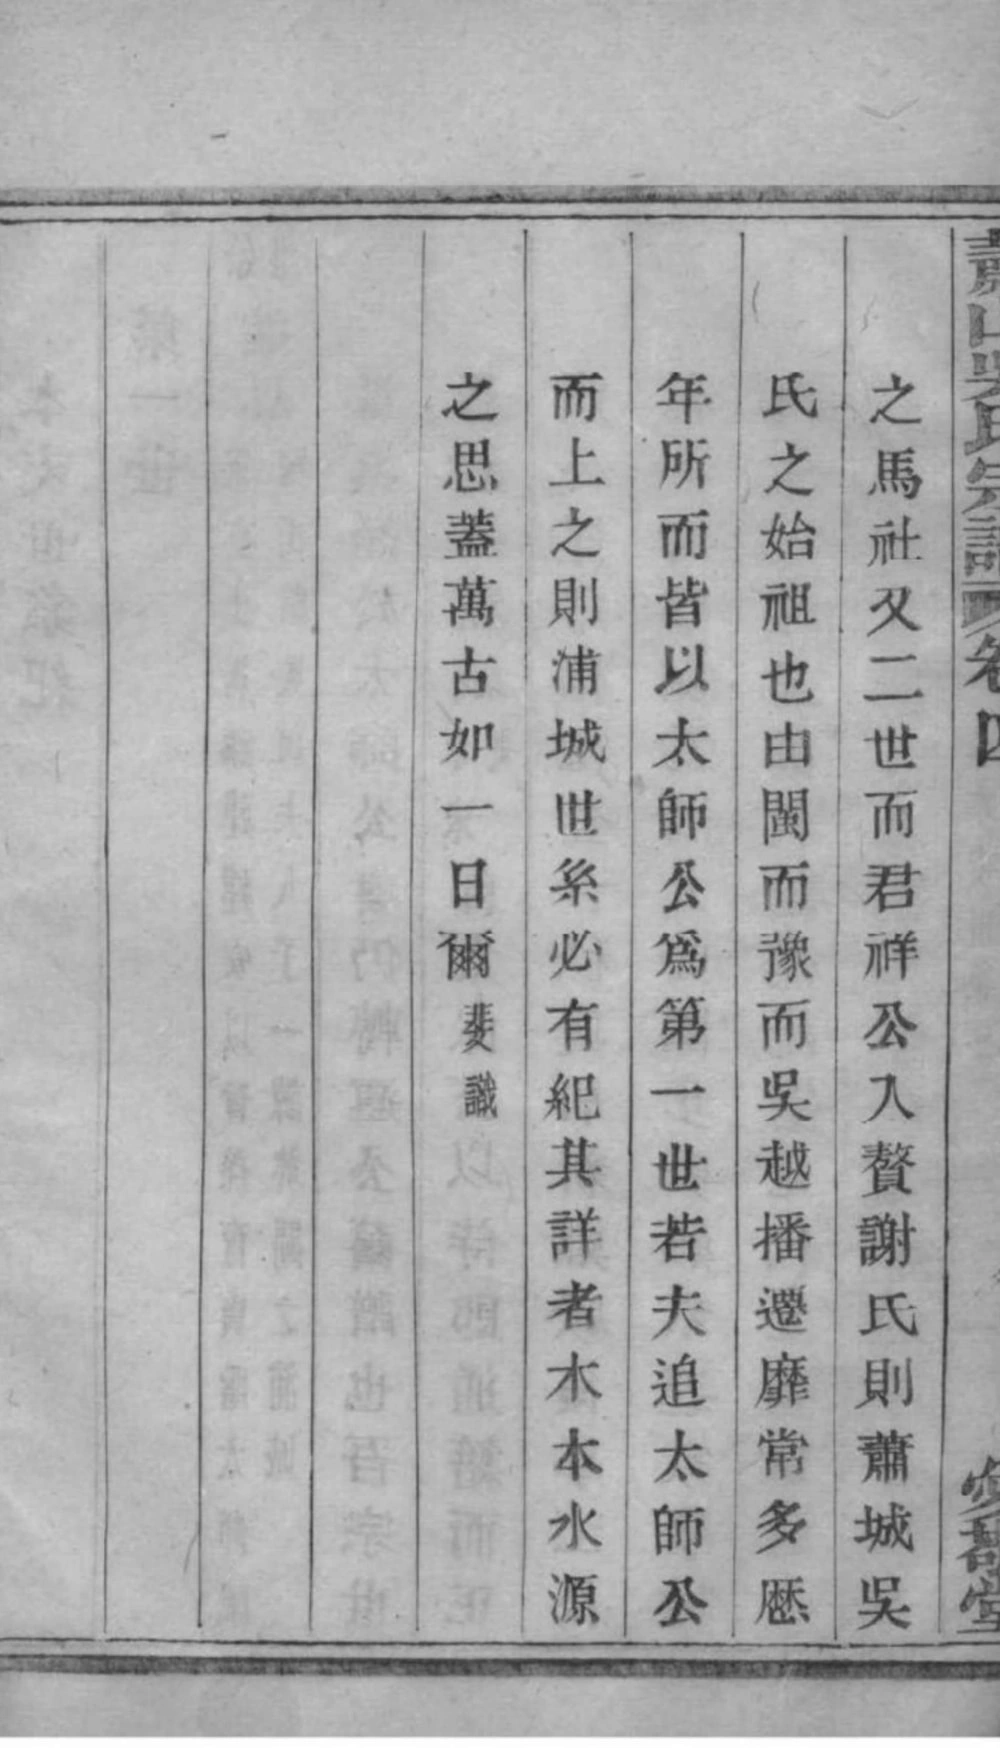 蕭山吳氏宗譜 卷四
之馬社又二世而君祥公入贅謝氏則蕭城吳
氏之始祖也由閩而豫而吳越播遷靡常多歷
年所而皆以太師公爲第一世若夫追太師公
而上之則浦城世系必有紀其詳者木本水源
之思蓋萬古如一日爾斐識